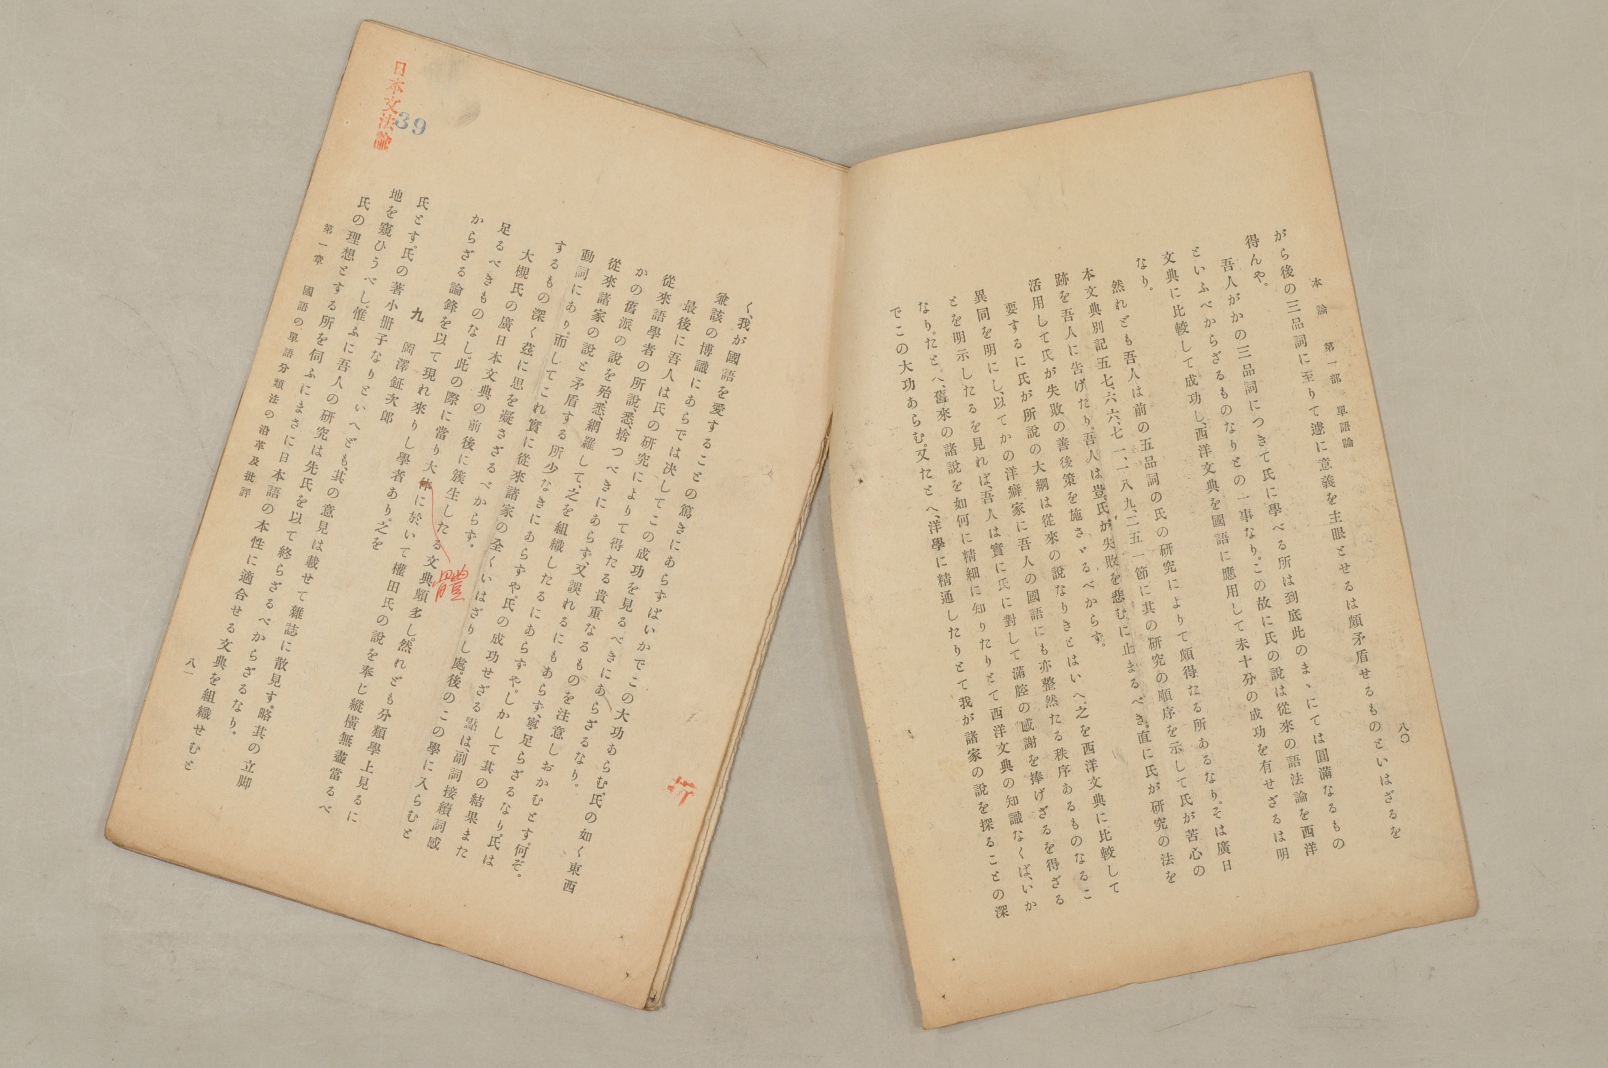 本論 第一部 單語論
八〇
がら後の三品詞に至りて遽に意義を主眼とせるは頗矛盾せるものといはざるを
得んや。
吾人がかの三品詞につきて氏に學べる所は到底此のまゝにては圓滿なるもの
といふべからざるものなりとの一事なり。この故に氏の説は從來の語法論を西洋
文典に比較して成功し、西洋文典を國語に應用して未十分の成功を有せざるは明
なり。
然れども吾人は前の五品詞の氏の研究によりて頗得たる所あるなり。そは廣日
本文典別記五七、六六、七一、一八九、二五一節に其の研究の順序を示して氏が苦心の
跡を吾人に告げたり。吾人は豈氏が失敗を悲むに止まるべき。直に氏が研究の法を
活用して氏が失敗の善後策を施さゞるべからず。
要するに氏が所説の大綱は從來の説なりきとはいへ、之を西洋文典に比較して
異同を明にし、以てかの洋癖家に吾人の國語にも亦整然たる秩序あるものなるこ
とを明示したるを見れば、吾人は實に氏に對して滿腔の感謝を捧げざるを得ざる
なり。たとへ、舊來の諸説を如何に精細に知りたりとて西洋文典の知識なくば、いか
でこの大功あらむ。又たとへ、洋學に精通したりとて我が諸家の説を探ることの深
く我が國語を愛することの篤きにあらずばいかでこの大功あらむ。氏の如く東西
兼該の博識にあらでは決してこの成功を見るべきにあらざるなり。
最後に吾人は氏の研究によりて得たる貴重なるものを注意しおかむとす。何ぞ。
從來語學者の所説、悉、捨つべきにあらず、又誤れるにもあらず、寧、足らざるなり。氏は
かの舊派の説を殆、悉、網羅して、之を組織したるにあらずや。しかして其の結果また
從來諸家の説と矛盾する所少なきにあらずや。氏の成功せざる點は、副詞接續詞感
動詞にあり。而してこれ實に從來諸家の全くいはざりし處。後のこの學に入らむと
するもの深く茲に思を凝さざるべからず。
大槻氏の廣日本文典の前後に簇生したる文典頗多し。然れども分類學上見るに
足るべきものなし。此の際に當り大体に於いて權田氏の説を奉じ縱横無盡當るべ
からざる論鋒を以て現れ來りし學者あり。之を
九 岡澤鉦次郎
氏とす。氏の著小冊子なりといへども其の意見は載せて雜誌に散見す。略其の立脚
地を窺ひうべし。惟ふに吾人の研究は先氏を以て終らざるべからざるなり。
氏の理想とする所を伺ふにまさに日本語の本性に適合せる文典を組織せむと
第一章 國語の單語分類法の沿革及批評
八一
日本文法論
39
體